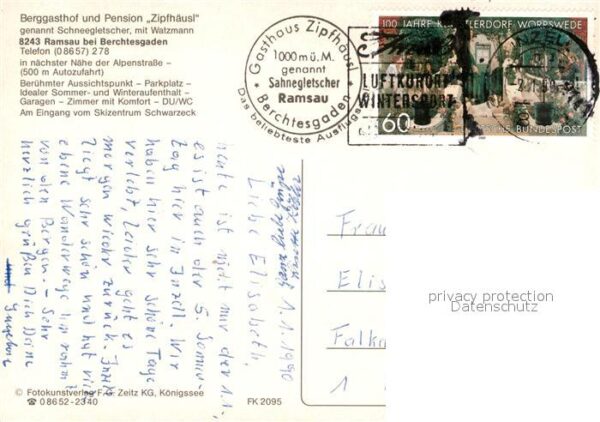 Berggasthof und Pension „Zipfhäusl"
genannt Schneegletscher, mit Watzmann
8243 Ramsau bei Berchtesgaden
Telefon (0 86 57) 278
in nächster Nähe der Alpenstraße –
(500 m Autozufahrt)
Berühmter Aussichtspunkt – Parkplatz –
Idealer Sommer- und Winteraufenthalt –
Garagen – Zimmer mit Komfort – DU/WC
Am Eingang vom Skizentrum Schwarzeck
Gasthaus Zipfhäusl
1000 m ü. M.
genannt
Sahnegletscher
Ramsau
Berchtesgaden
Das beliebteste Ausflugs
100 JAHRE KÜNSTLERDORF WORPSWEDE
60
DEUTSCHE BUNDESPOST
LUFTKURORT
WINTERSPORT
1.1.1990
Liebe Elisabeth,
heute ist nicht nur der 1.1.,
es ist auch der 5. Sonn-
tag hier in Inzell. Wir
haben hier sehr schöne Tage
verlebt, leider geht es
morgen wieder zurück. Inzell
liegt sehr schön und hat viele
ebene Wanderwege umrahmt
von den Bergen. – Sehr
herzlich grüßen Dich Deine
Frau
Elis
Falka
1
privacy protection
Datenschutz
© Fotokunstverlag F.G. Zeitz KG, Königssee
☎ 0 86 52 - 23 40
FK 2095